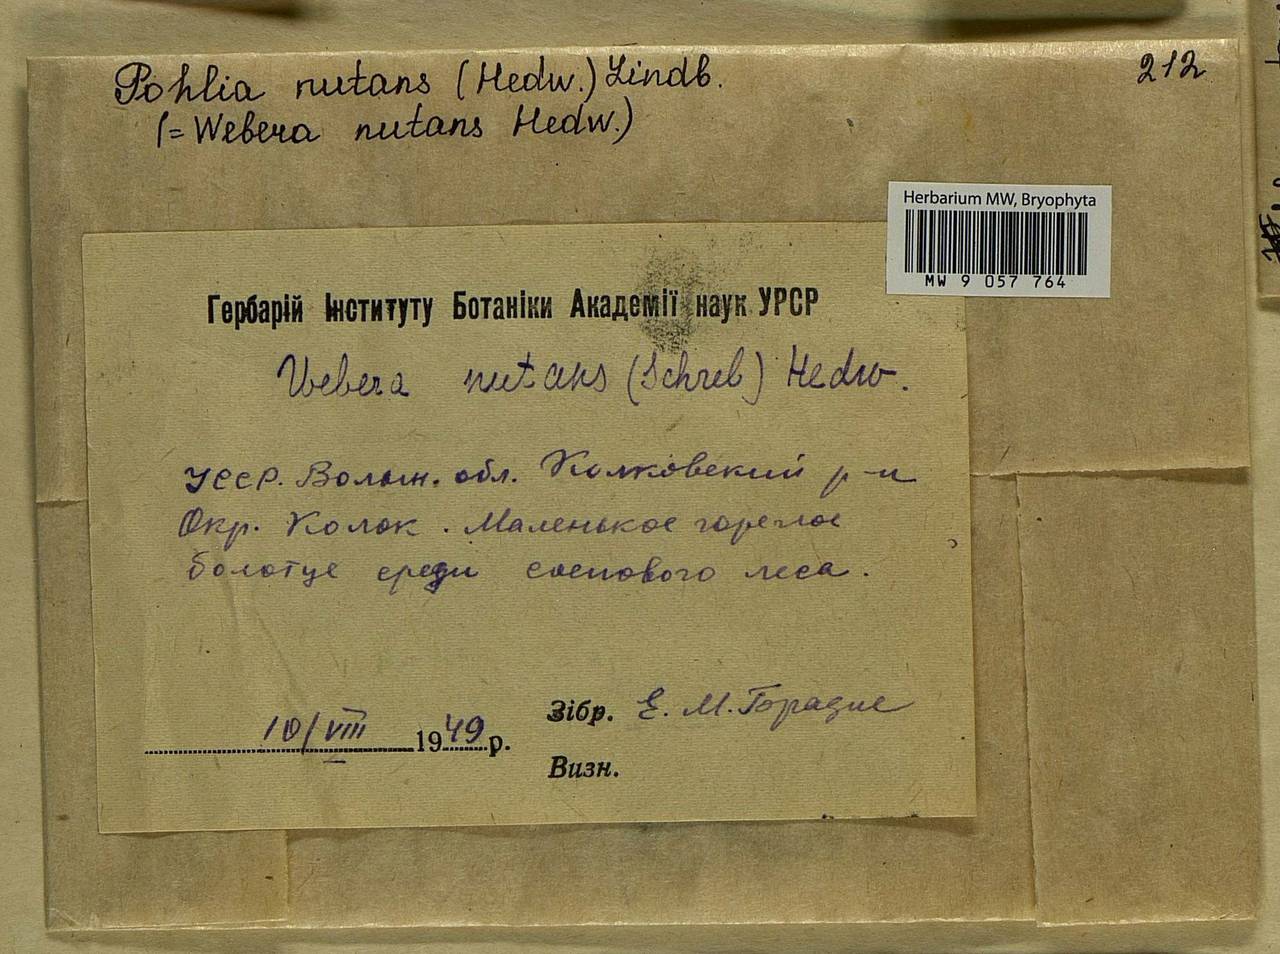 Pohlia nutans (Hedw.) Lindb.
212
(= Webera nutans Hedw.)
Herbarium MW, Bryophyta
MW 9 057 764
Гербарій Інституту Ботаніки Академії наук УРСР
Webera nutans (Schreb) Hedw.
УССР. Волын. обл. Колковский р-н
Окр. Колок. Маленькое горелое
болотце среди соснового леса.
10/VIII 1949 р.
Зібр. Е. М.
Визн.